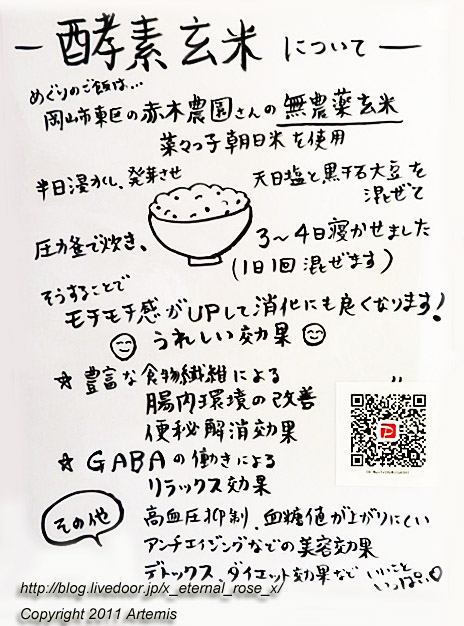 ー酵素玄米についてー
めぐりのご飯は…
岡山市東区の赤木農園さんの無農薬玄米
菜々っ子朝日米を使用
半日浸かし、発芽させ
天日塩と黒千石大豆を
混ぜて
圧力釜で炊き、
3〜4日寝かせました
(1日1回混ぜます)
そうすることで
モチモチ感がUPして消化にも良くなります!
うれしい効果
☆豊富な食物繊維による
腸内環境の改善
便秘解消効果
☆GABAの働きによる
リラックス効果
その他
高血圧抑制、血糖値が上がりにくい
アンチエイジングなどの美容効果
デトックス、ダイエット効果など いいこと
いっぱい
http://blog.livedoor.jp/x_eternal_rose_x/
Copyright 2011 Artemis